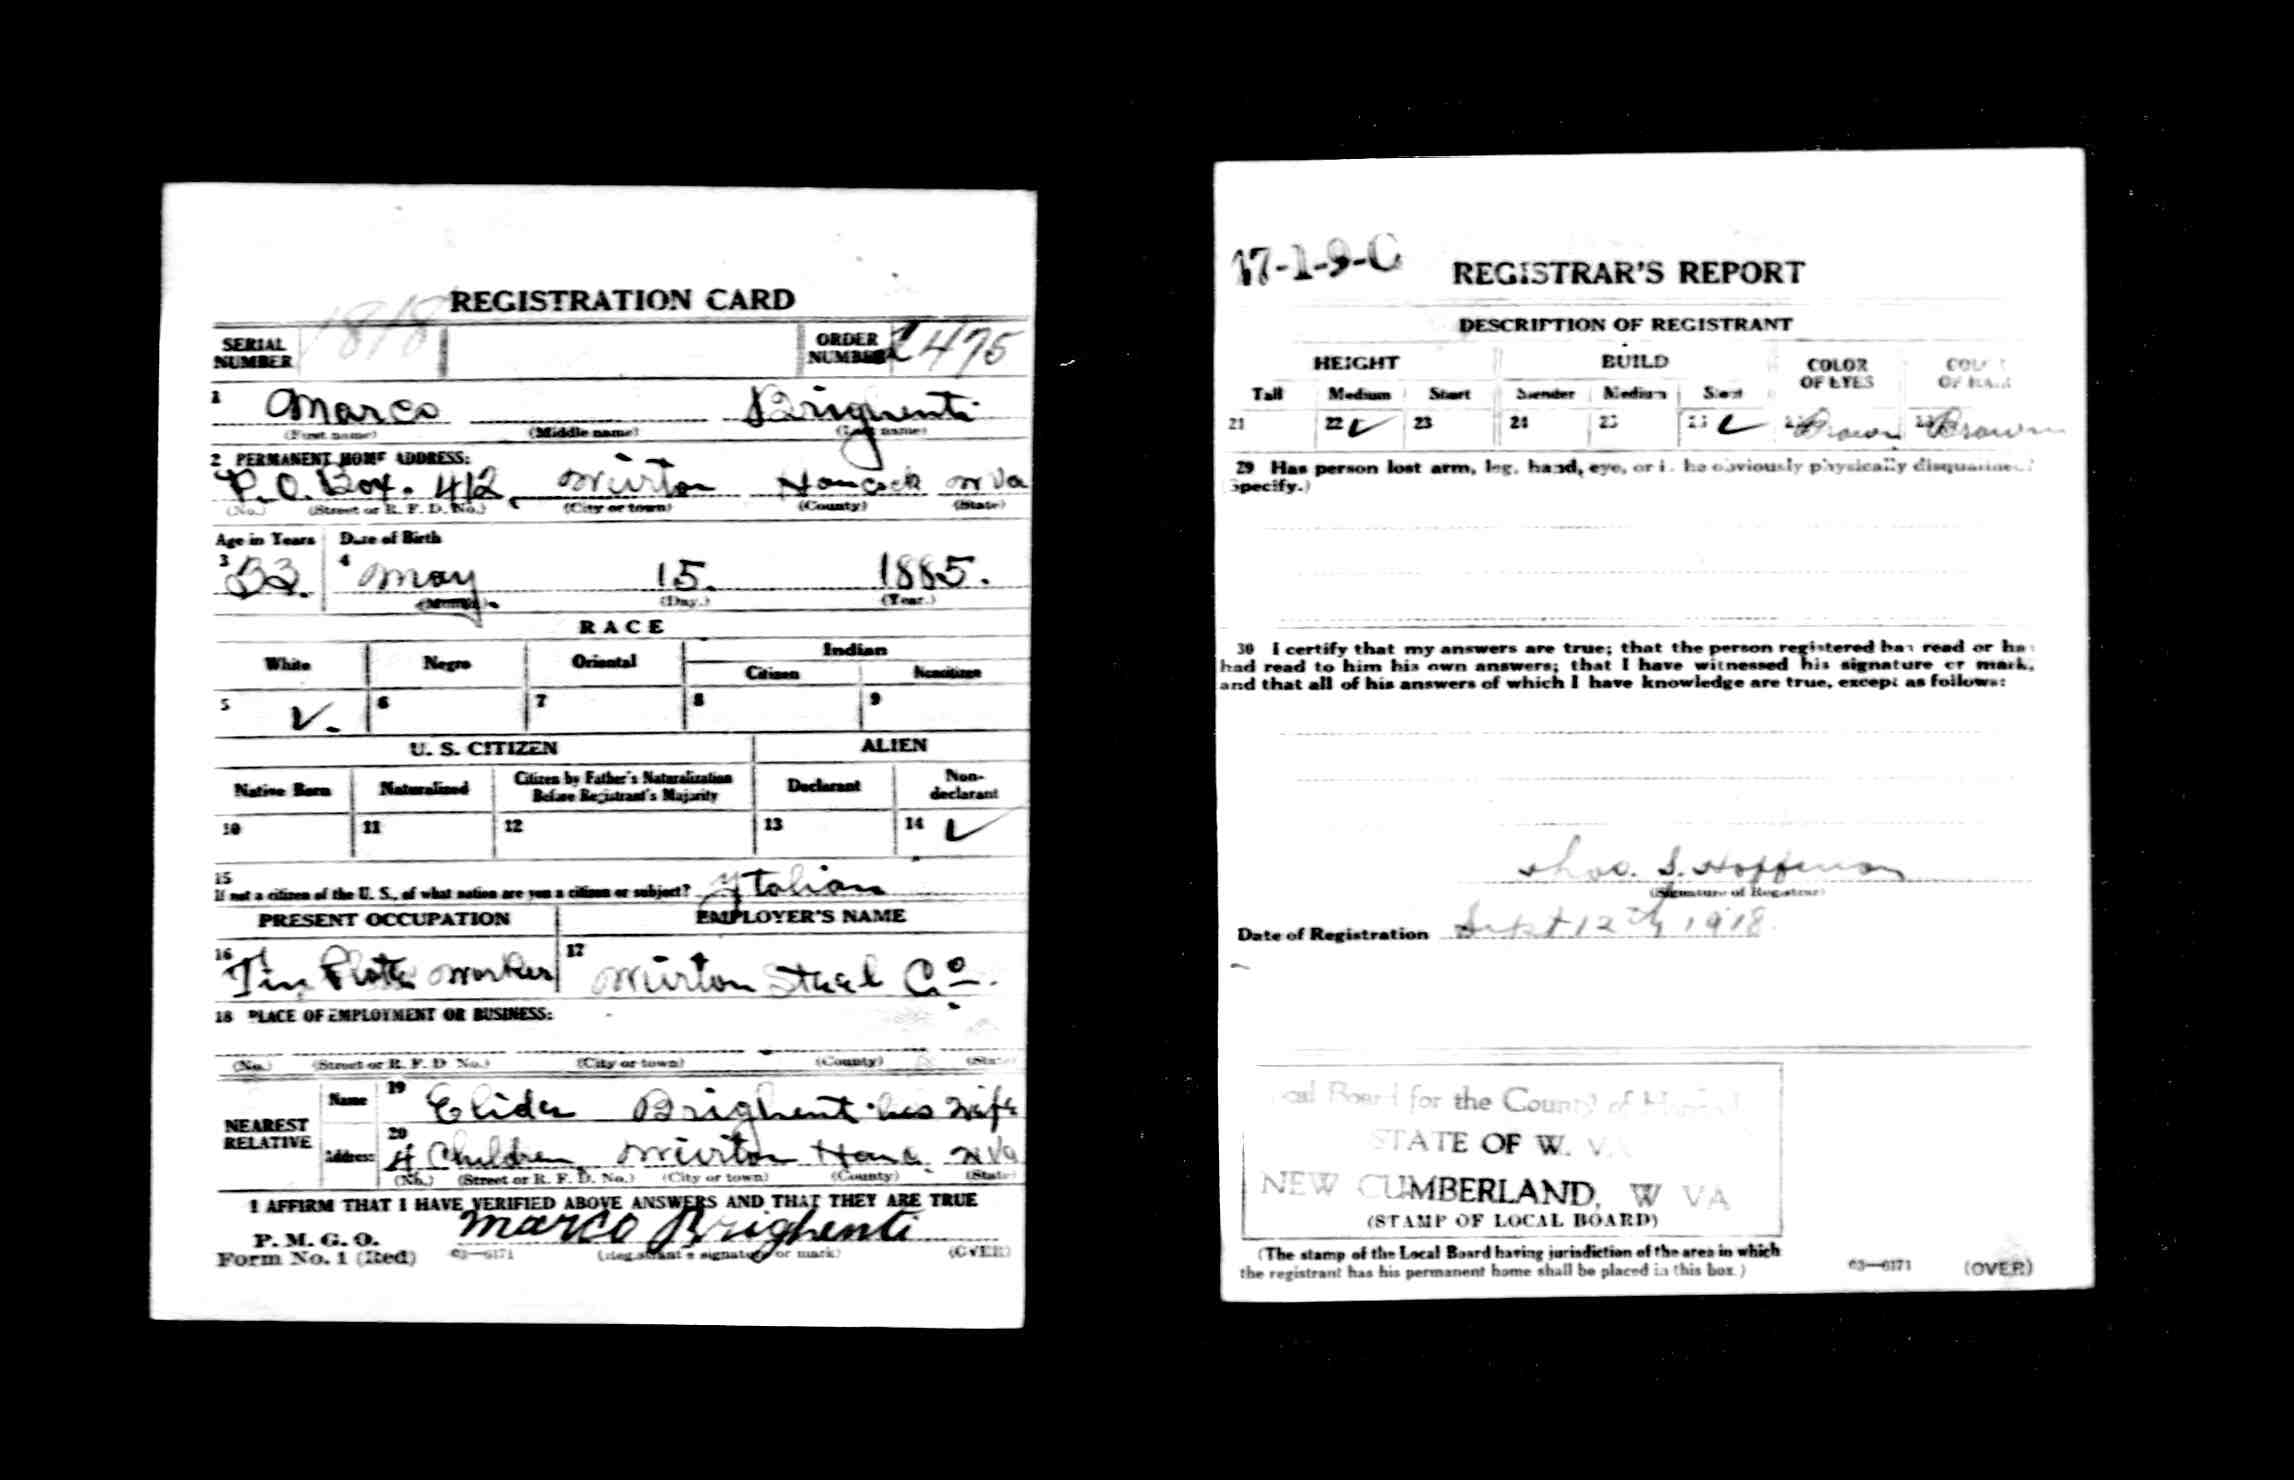 REGISTRATION CARD
SERIAL NUMBER 1818 ORDER NUMBER 475
1 Marco Brighenti
(First name) (Middle name) (Last name)
2 PERMANENT HOME ADDRESS:
P.O. Box. 412, Weirton Hancock W Va
(No.) (Street or R. F. D. No.) (City or town) (County) (State)
Age in Years Date of Birth
3 33. 4 May 15. 1885.
(Month.) (Day.) (Year.)
RACE
White Negro Oriental Indian
Citizen Noncitizen
5 ✓. 6 7 8 9
U. S. CITIZEN ALIEN
Native Born Naturalized Citizen by Father's Naturalization Before Registrant's Majority Declarant Non-declarant
10 11 12 13 14 ✓
15
If not a citizen of the U. S., of what nation are you a citizen or subject? Italian
PRESENT OCCUPATION EMPLOYER'S NAME
16 Tin Plate Worker 17 Weirton Steel Co.
18 PLACE OF EMPLOYMENT OR BUSINESS:
(No.) (Street or R. F. D. No.) (City or town) (County) (State)
NEAREST RELATIVE Name 19 Elider Brighent his Wife
Address 20 4 Children Weirton Hanc. W Va
(No.) (Street or R. F. D. No.) (City or town) (County) (State)
I AFFIRM THAT I HAVE VERIFIED ABOVE ANSWERS AND THAT THEY ARE TRUE
P. M. G. O.
Form No. 1 (Red) 03—6171 Marco Brighenti
(Registrant's signature or mark) (OVER)
47-1-9-C REGISTRAR'S REPORT
DESCRIPTION OF REGISTRANT
HEIGHT BUILD COLOR OF EYES COLOR OF HAIR
Tall Medium Short Slender Medium Stout
21 22 ✓ 23 24 25 26 ✓ 27 Brown 28 Brown
29 Has person lost arm, leg, hand, eye, or is he obviously physically disqualified?
(Specify.)
30 I certify that my answers are true; that the person registered has read or has
had read to him his own answers; that I have witnessed his signature or mark,
and that all of his answers of which I have knowledge are true, except as follows:
Thos. S.
(Signature of Registrar)
Date of Registration Sept 12th 1918.
Local Board for the County of Hancock
STATE OF W. VA
NEW CUMBERLAND, W VA
(STAMP OF LOCAL BOARD)
(The stamp of the Local Board having jurisdiction of the area in which
the registrant has his permanent home shall be placed in this box.)
03—6171 (OVER)